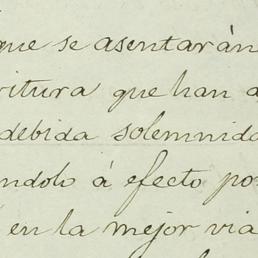 que se asentarán
ritura que han d
debida solemnida
ndolo á efecto po
en la mejor via